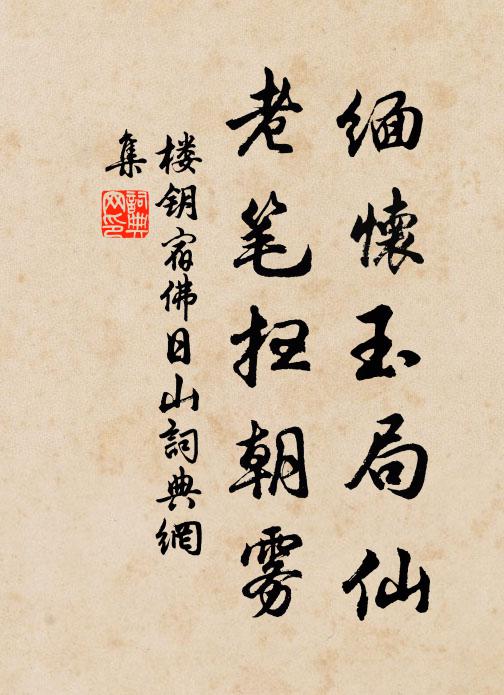 缅懷玉局仙
老笔扫朝雾
楼钥宿佛日山詞典網
集
詞典网印